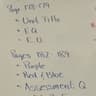 Page 178-179
• Unit Title
• E.Q
• E.U
Pages 182-189
• Purple
• Red / Blue
• Assessment: Q